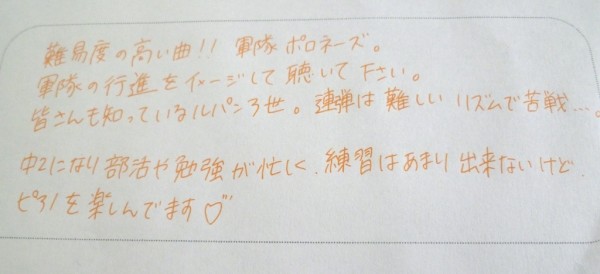 難易度の高い曲!! 軍隊ポロネーズ。
軍隊の行進をイメージして聴いて下さい。
皆さんも知っているルパン3世。連弾は難しいリズムで苦戦…。
中2になり部活や勉強が忙しく、練習はあまり出来ないけど、
ピアノを楽しんでます♡